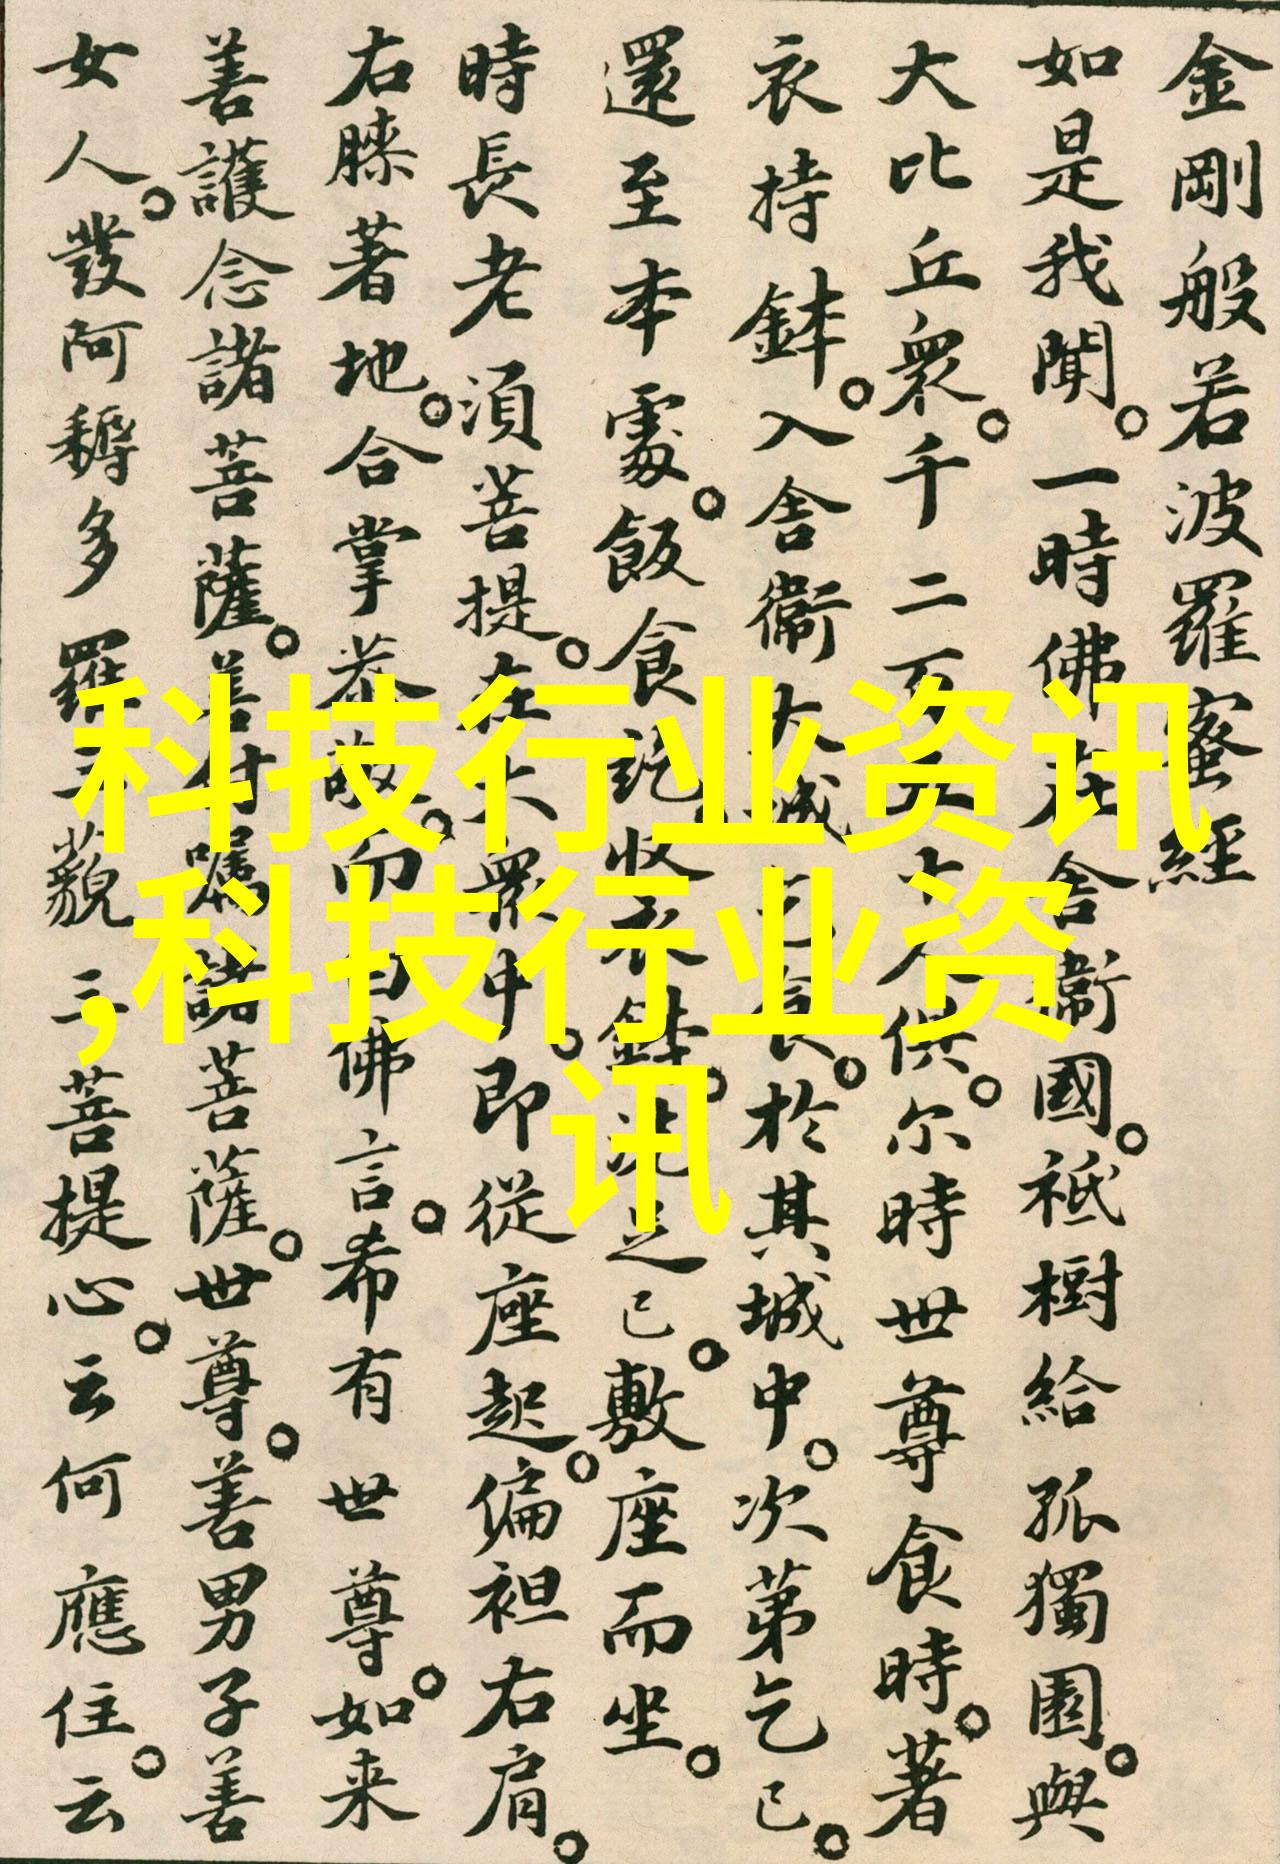 金剛般若波羅蜜經
如是我聞。一時佛在舍衛國。祇樹給孤獨園。與
大比丘衆。千二百五十人俱。尔時世尊食時。著
衣持鉢。入舍衛大城乞食。於其城中。次第乞已。
還至本處。飯食訖。收衣鉢。洗足已。敷座而坐。
時長老須菩提。在大衆中。即從座起。偏袒右肩。
右膝著地。合掌恭敬。而白佛言。希有世尊。如来
善護念諸菩薩。善付嘱諸菩薩。世尊。善男子善
女人。發阿耨多羅三藐三菩提心。云何應住。云
科技行业资讯
,科技行业资
讯